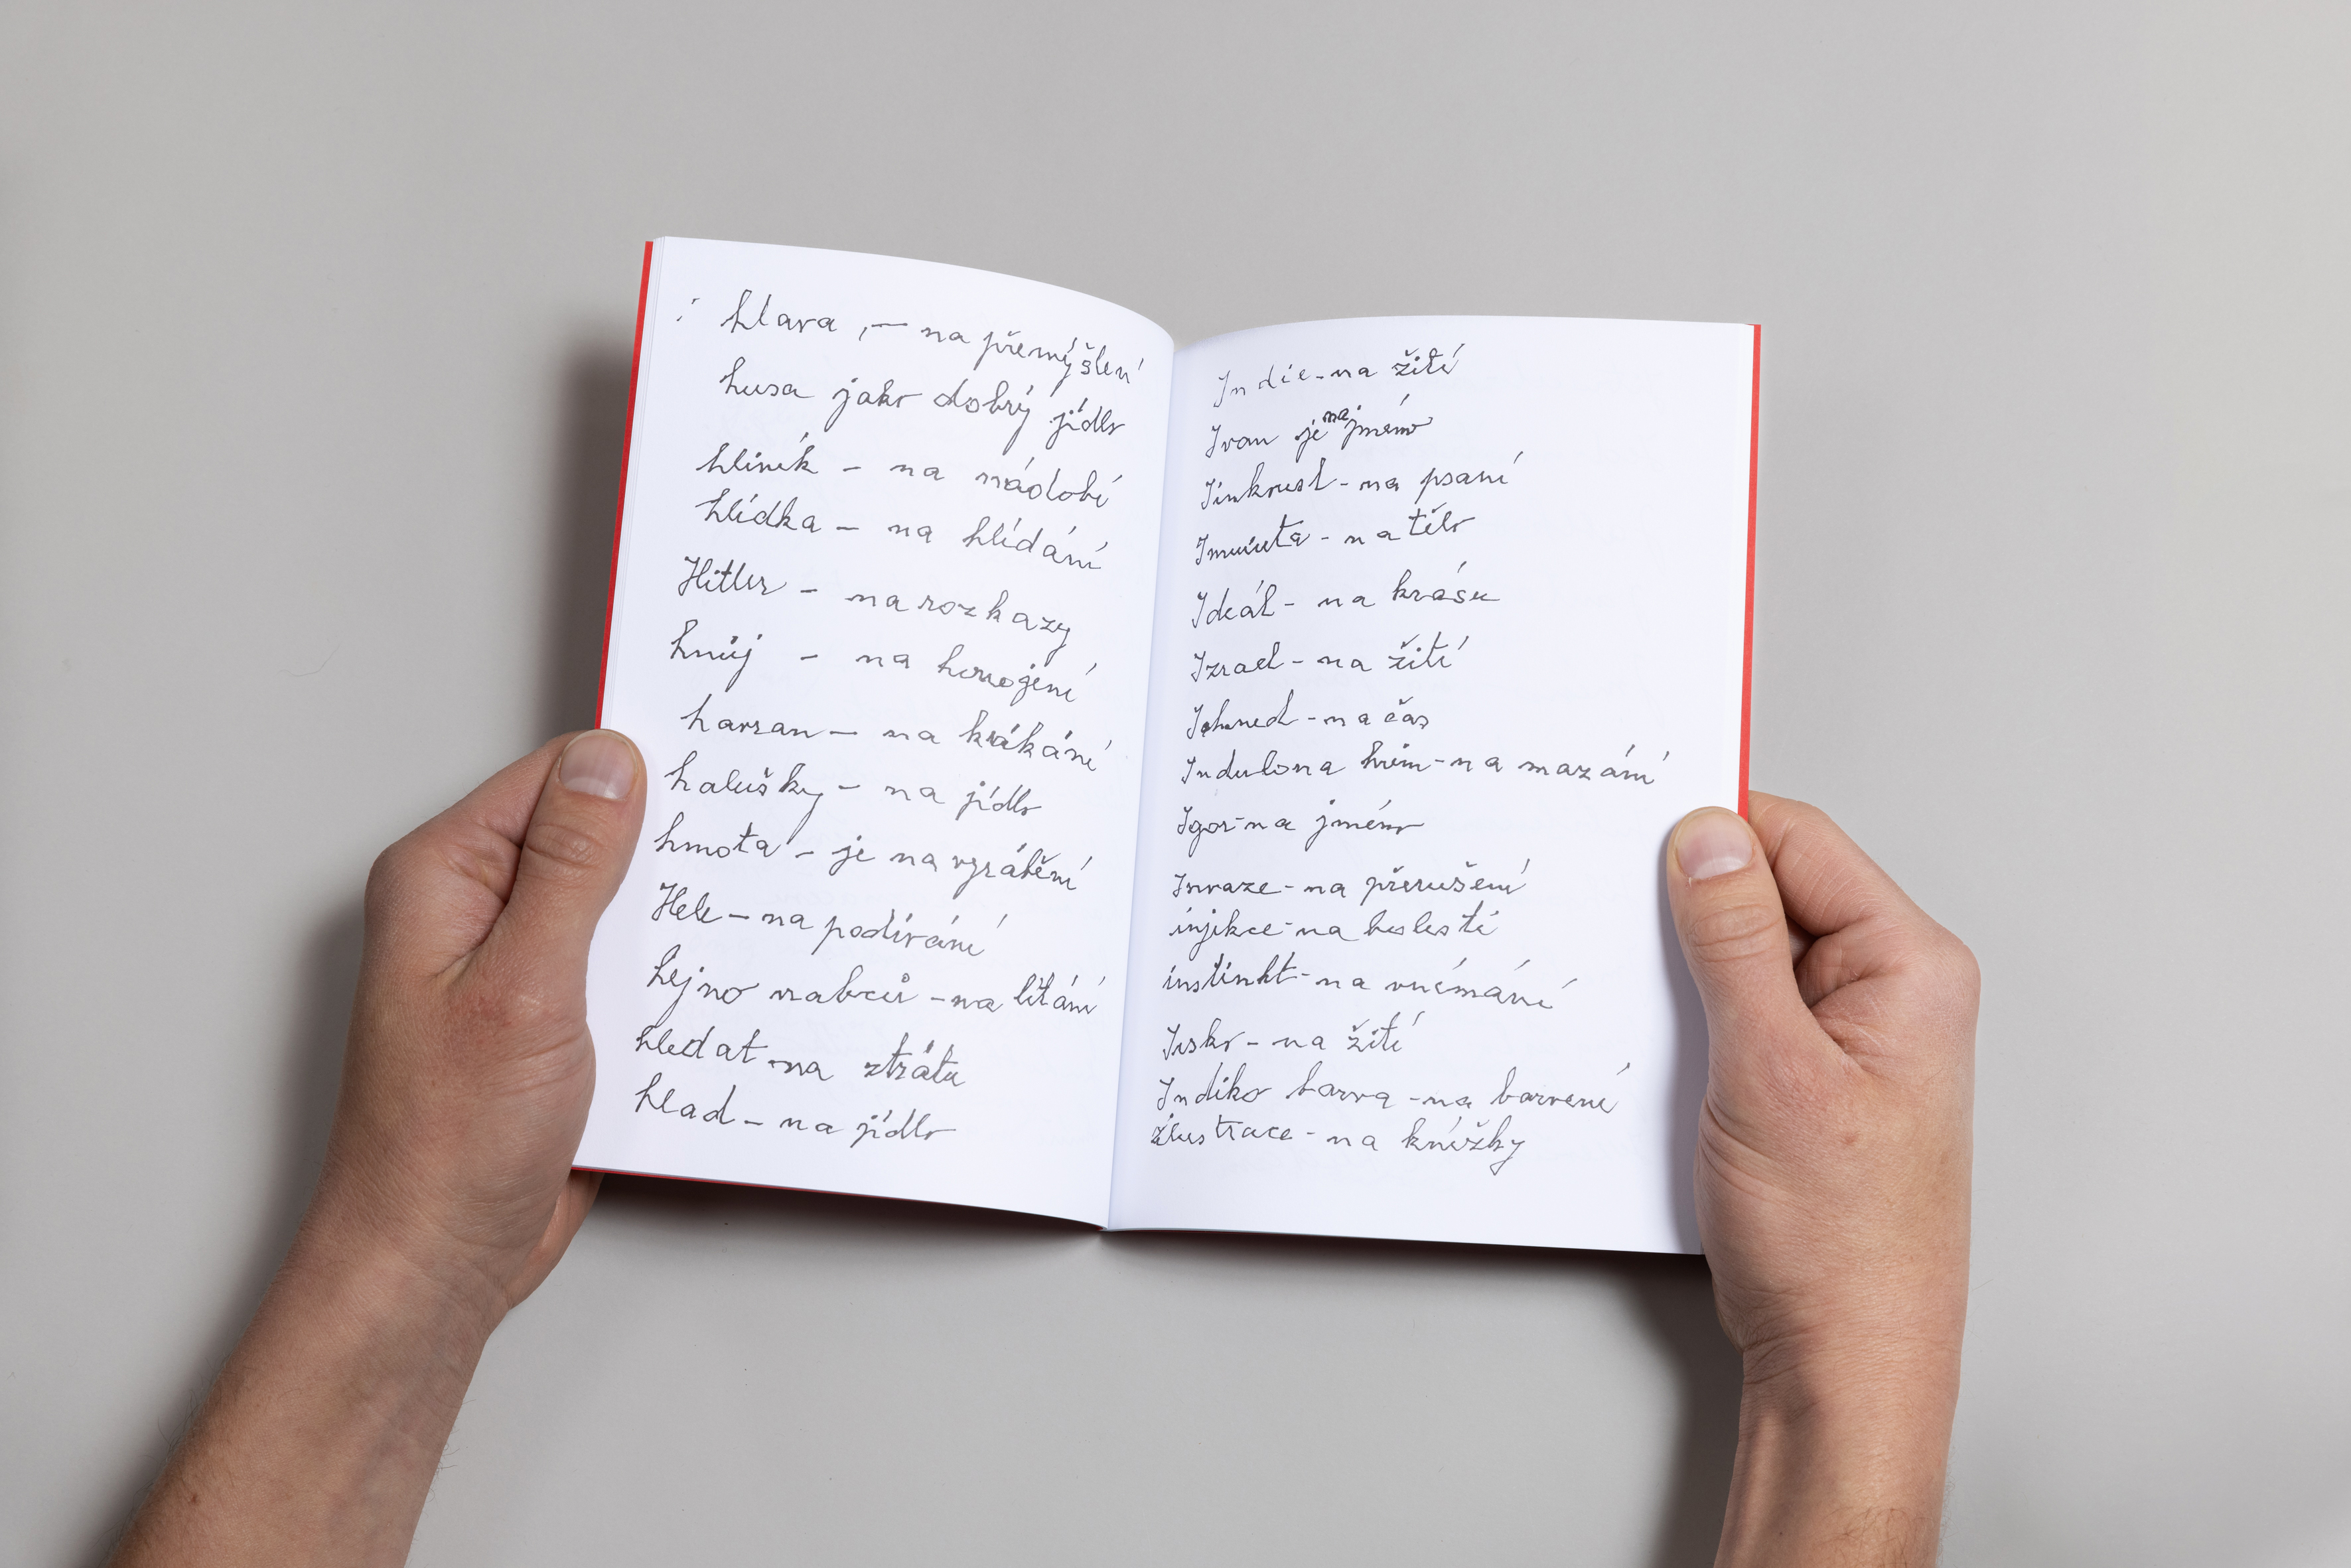 hlava ,— na přemýšlení
husa jako dobrý jídlo
hliník – na nádobí
hlídka – na hlídání
Hitler – na rozkazy
hnůj – na hnojení
havran – na krákání
halušky – na jídlo
hmota – je na vyrábění
Hele – na podívání
hejno vrabců – na lítání
hledat – na ztrátu
hlad – na jídlo
Indie – na žití
Ivan je na jméno
Iinkoust – na psaní
Imunita – na tělo
Ideál – na krásu
Izrael – na žití
Ihned – na čas
Indulona krém – na mazání
Igor – na jméno
Invaze – na přerušení
injekce – na bolesti
instinkt – na vnímání
– na žití
Indiko barva – na barvení
ilustrace – na knížky